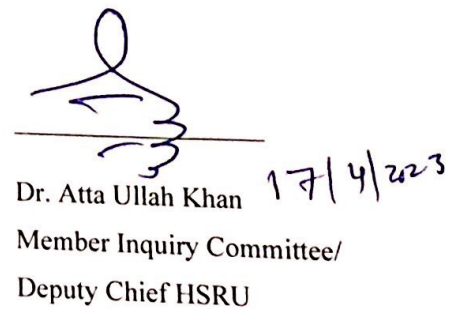 Dr. Atta Ullah Khan 17/4/2023
Member Inquiry Committee/
Deputy Chief HSRU